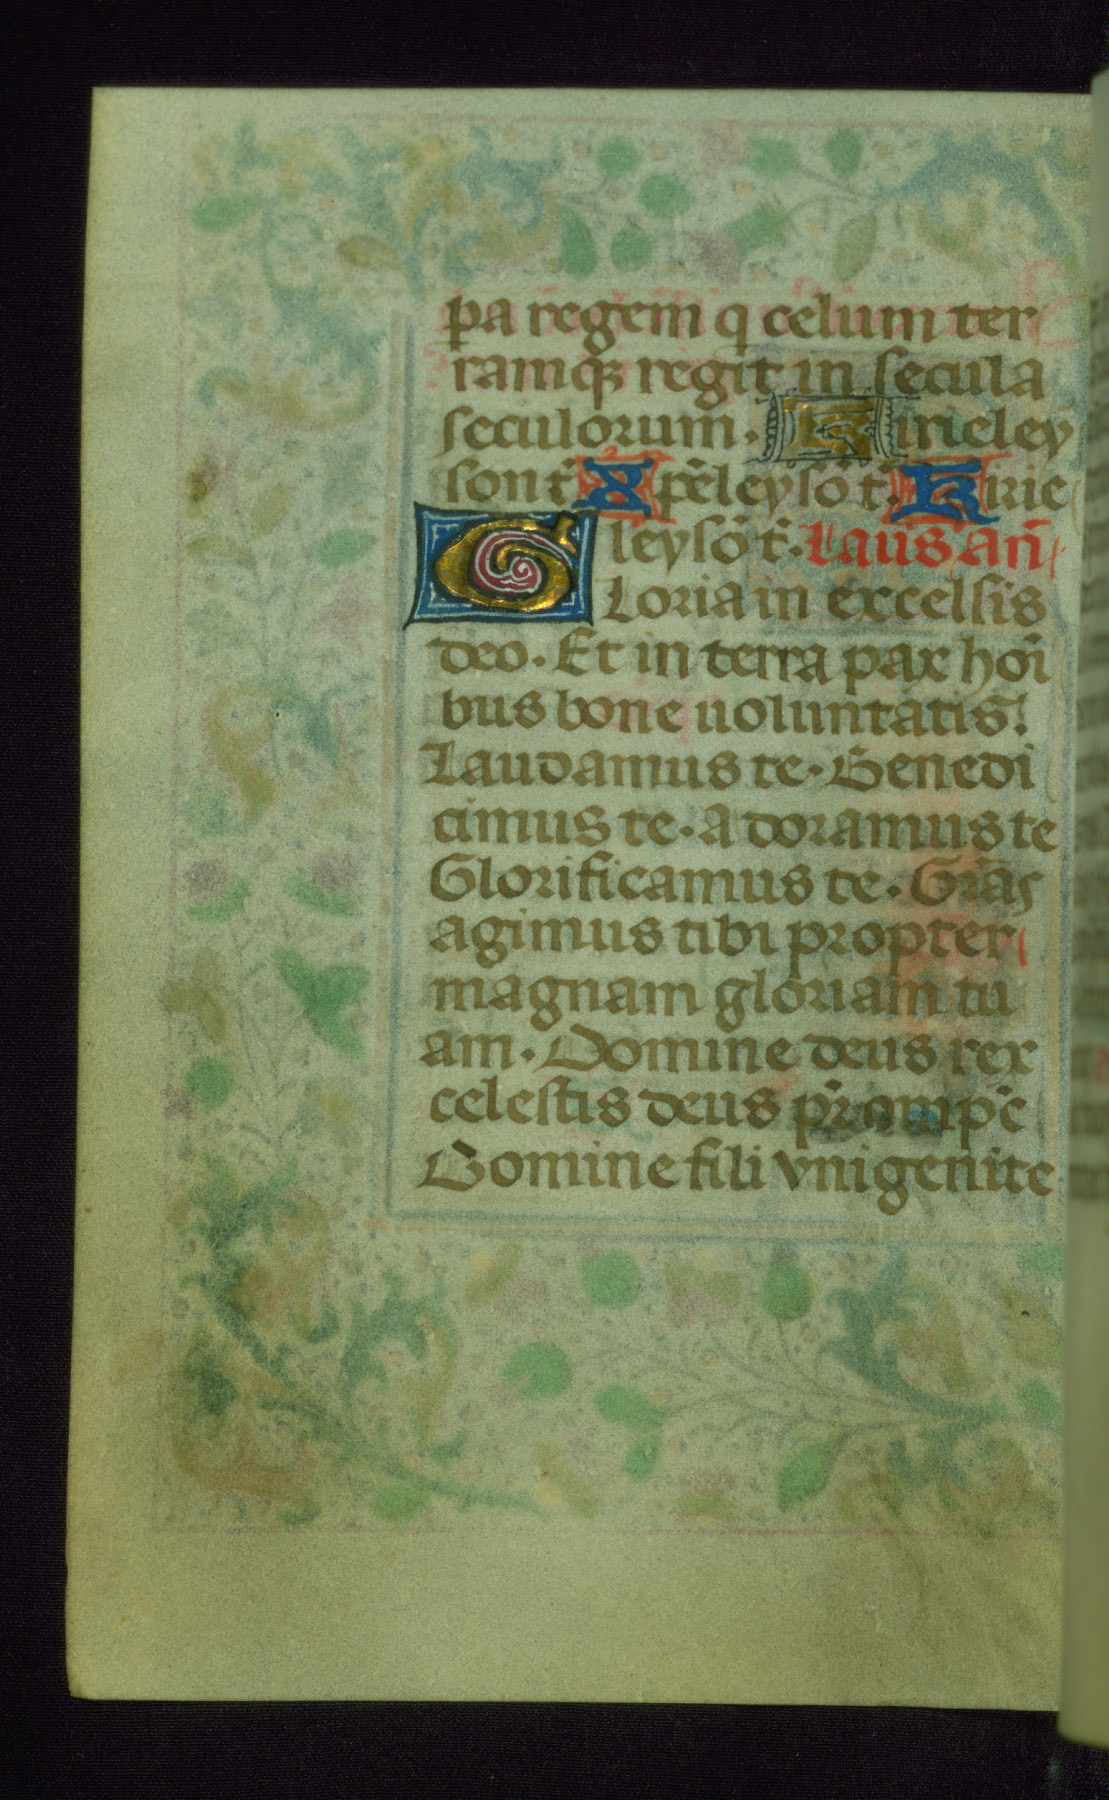 pa regem q̄ celum ter
ramqꝫ regit in secula
seculorum. Kirieley
son t̄ Xp̄eleysō t̄. Kirie
leysō t̄. Laus an̄
Gloria in excelsis
deo. Et in terra pax hoī
bus bone uoluntatis.
Laudamus te. Benedi
cimus te. adoramus te
Glorificamus te. Gr̄as
agimus tibi propter
magnam gloriam tu
am. Domine deus rex
celestis deus pr̄ omp̄c
Domine fili vnigenite